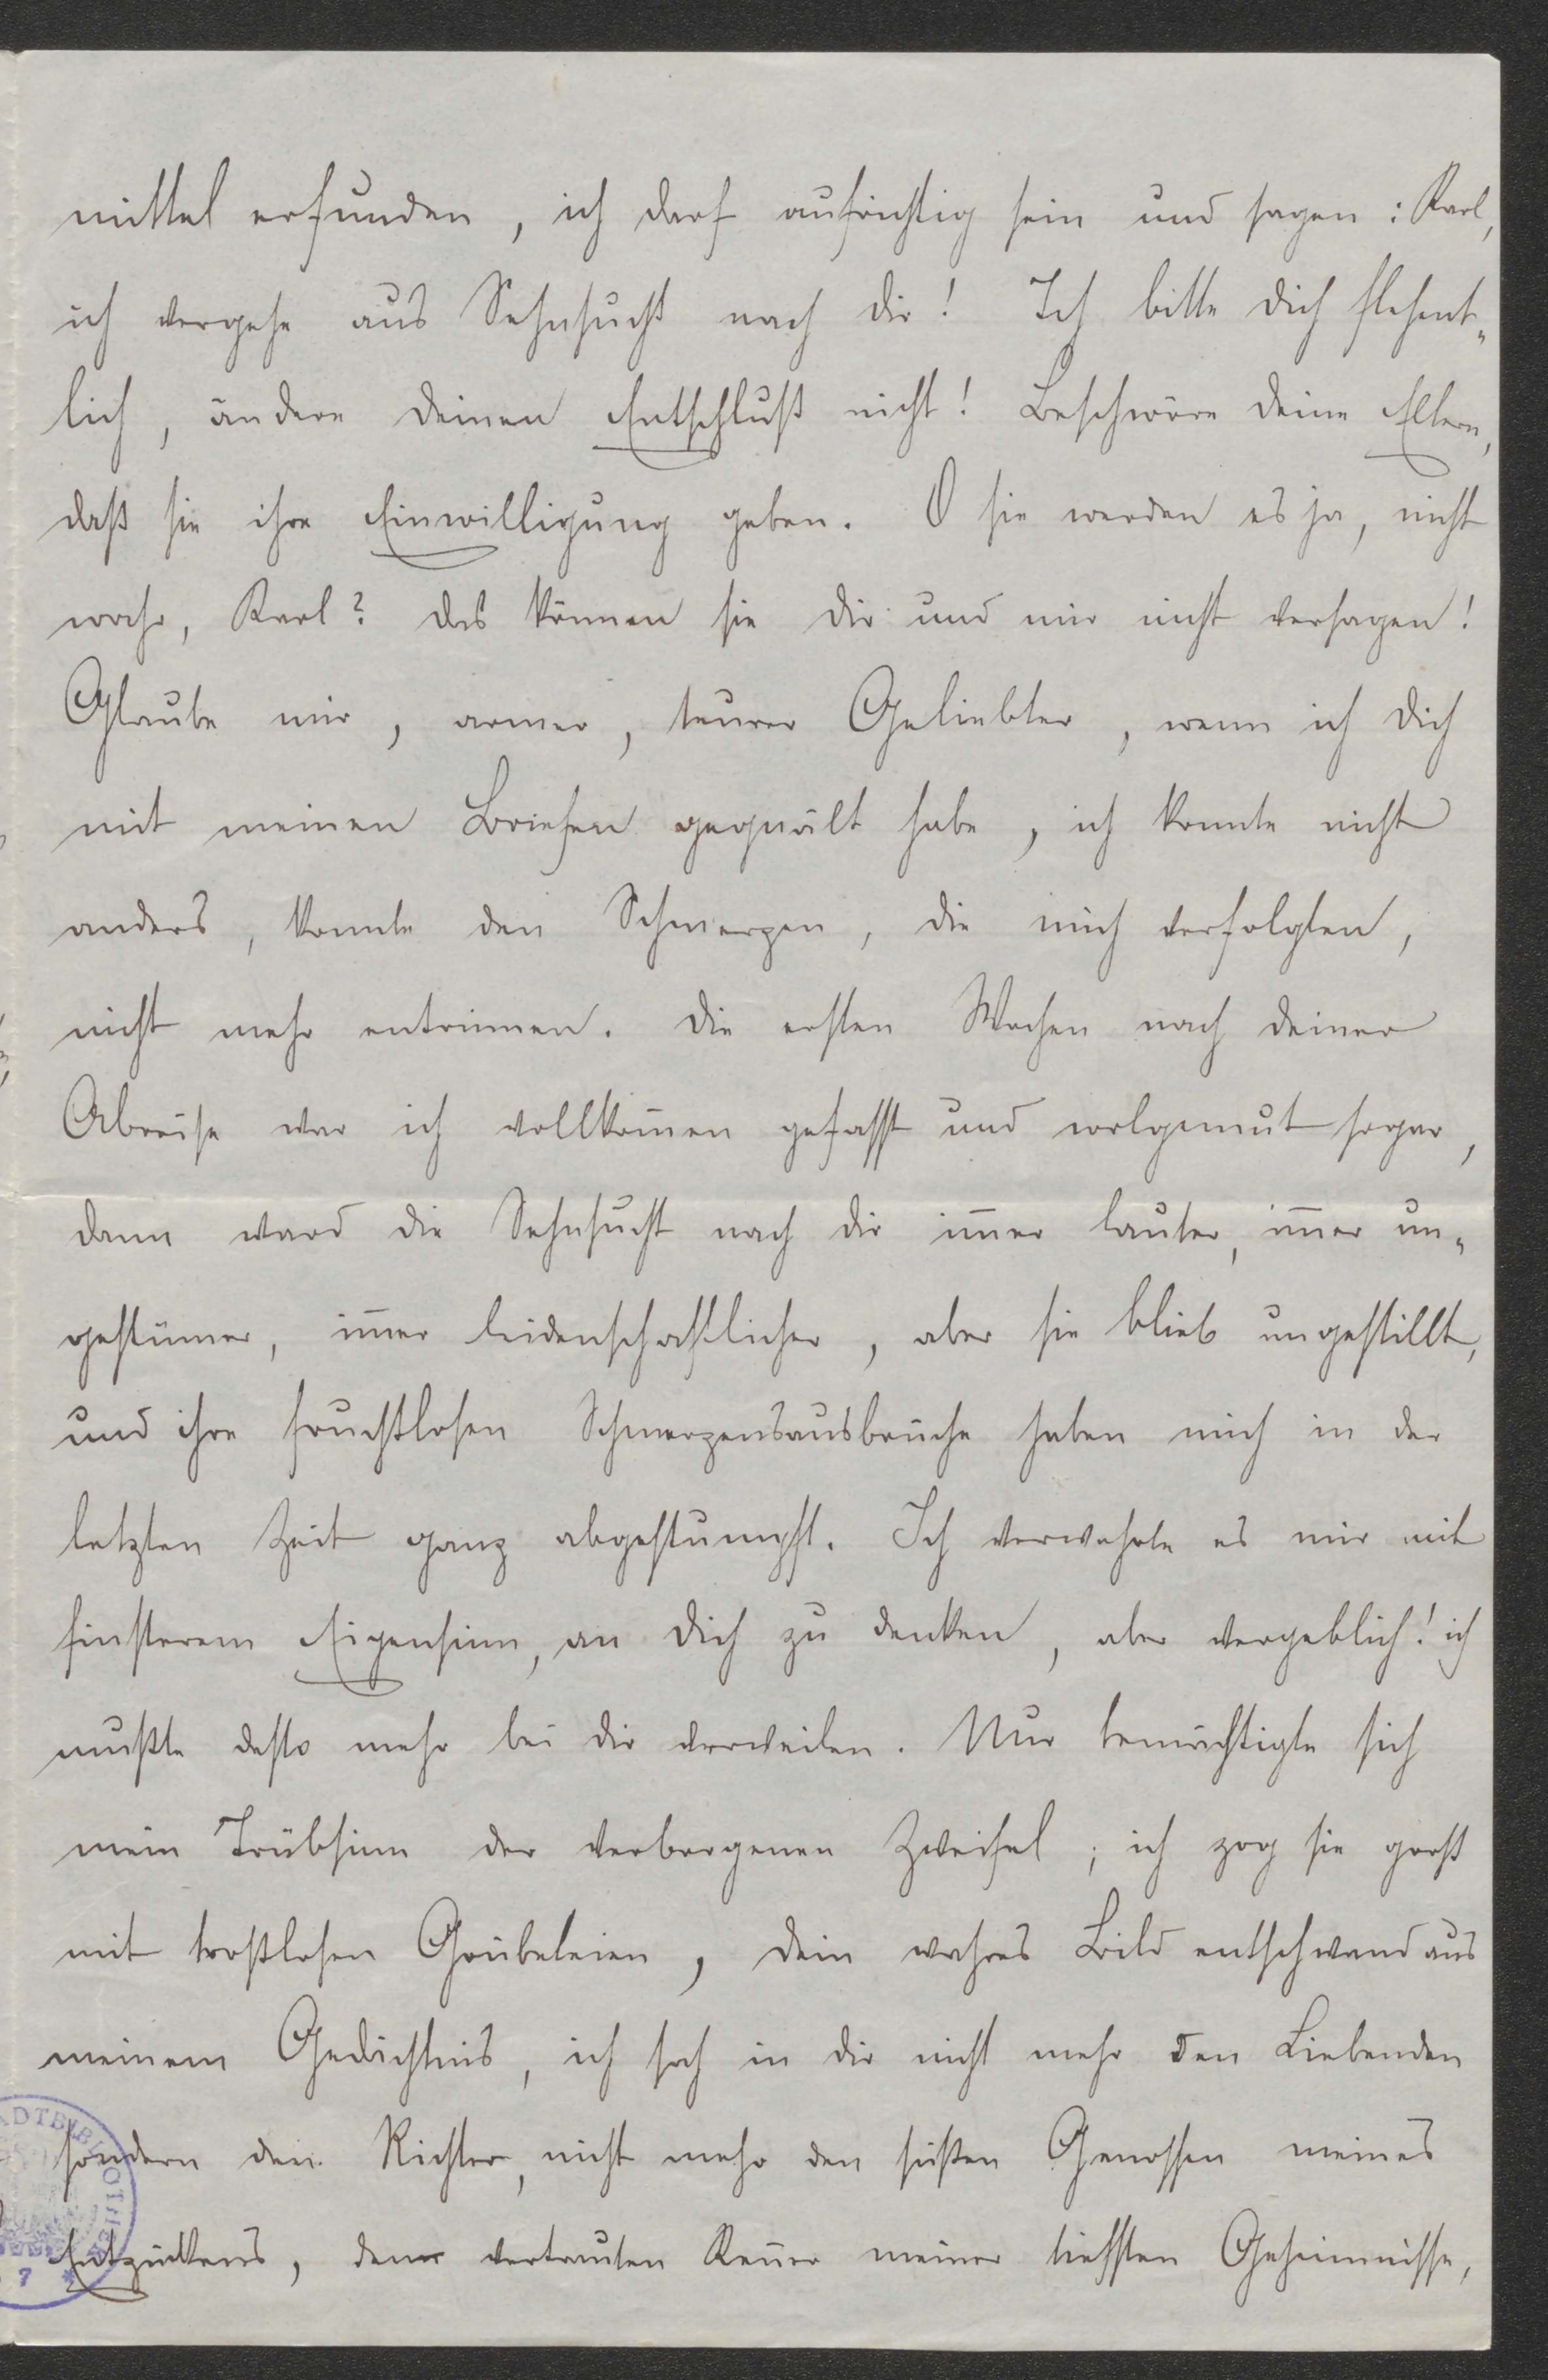 mittel erfunden, ich darf aufrichtig sein und sagen: Karl,
ich vergehe aus Sehnsucht nach dir! Ich bitte dich flehent-
lich, ändere deinen Entschluß nicht! Beschwöre deine Eltern,
daß sie ihre Einwilligung geben. O sie werden es ja, nicht
wahr, Karl? Das können sie dir und mir nicht versagen!
Glaube mir, armer, teurer Geliebter, wenn ich dich
mit meinen Briefen gequält habe, ich konnte nicht
anders, konnte den Schmerzen, die mich verfolgten,
nicht mehr entrinnen. Die ersten Wochen nach deiner
Abreise war ich vollkom̅en gefasst und wolgemut sogar,
dann ward die Sehnsucht nach dir im̅er lauter, im̅er un-
gestümer, im̅er leidenschaftlicher, aber sie blieb ungestillt,
und ihre fruchtlosen Schmerzensausbrüche haben mich in der
letzten Zeit ganz abgestumpft. Ich verwehrte es mir mit
finsterem Eigensinn, an dich zu denken, aber vergeblich! ich
mußte desto mehr bei dir verweilen. Nur bemächtigte sich
mein Trübsinn der verborgenen Zweifel; ich zog sie groß
mit trostlosen Grübeleien, dein wahres Bild entschwand aus
meinem Gedächtnis, ich sah in dir nicht mehr den Liebenden
sondern den Richter, nicht mehr den süßen Genossen meines
Entzückens, den vertrauten Ken̅er meiner tiefsten Geheimnisse,